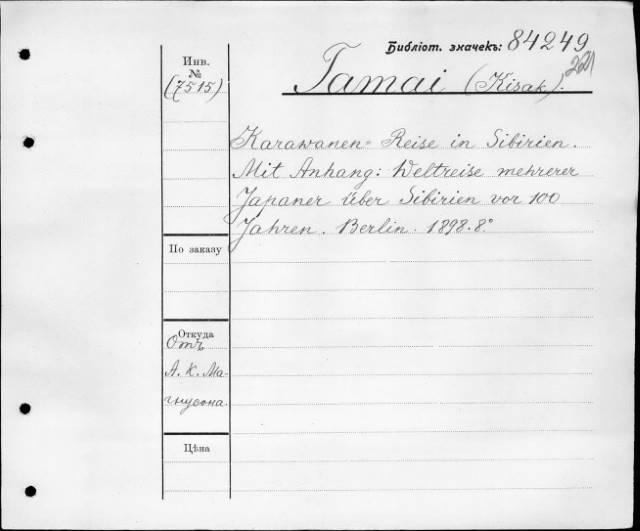 Библіот. значекъ: 84249
221
Инв.
№
(7515)
Tamai (Kisak).
Karawanen-Reise in Sibirien.
Mit Anhang: Weltreise mehrerer
Japaner über Sibirien vor 100
Jahren. Berlin. 1898. 8°
По заказу
Откуда
Отъ
А. К. Ма-
гнусона.
Цѣна